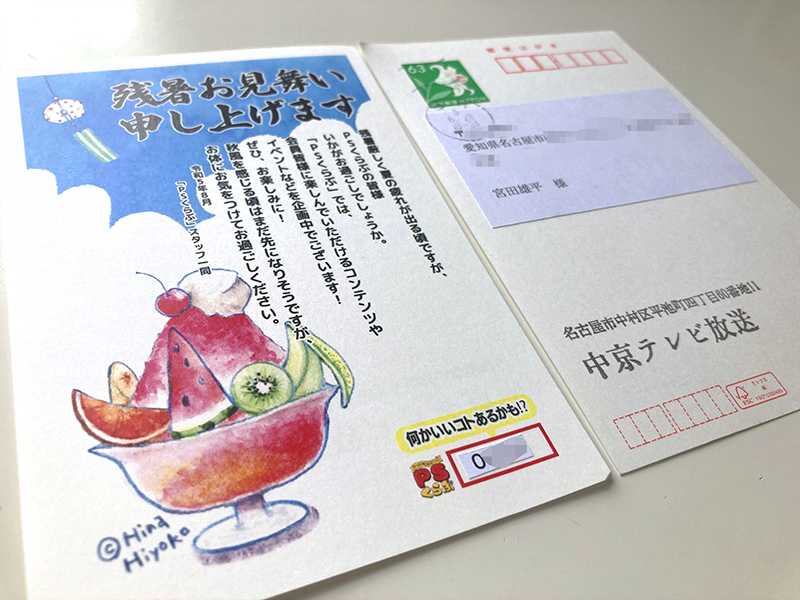 残暑お見舞い
申し上げます
残暑厳しく夏の疲れが出る頃ですが、
PSくらぶの皆様
いかがお過ごしでしょうか。
「PSくらぶ」では、
会員皆様に楽しんでいただけるコンテンツや
イベントなどを企画中でございます!
ぜひ、お楽しみに!
秋風を感じる頃はまだ先になりそうですが、
お体にお気をつけてお過ごしください。
令和5年8月
「PSくらぶ」スタッフ一同
何かいいコトあるかも!?
PS
くらぶ
0
©Hina
Hiyoko
郵便はがき
63
愛知県名古屋市
宮田雄平 様
名古屋市中村区平池町四丁目60番地11
中京テレビ放送
ミックス
紙
FSC